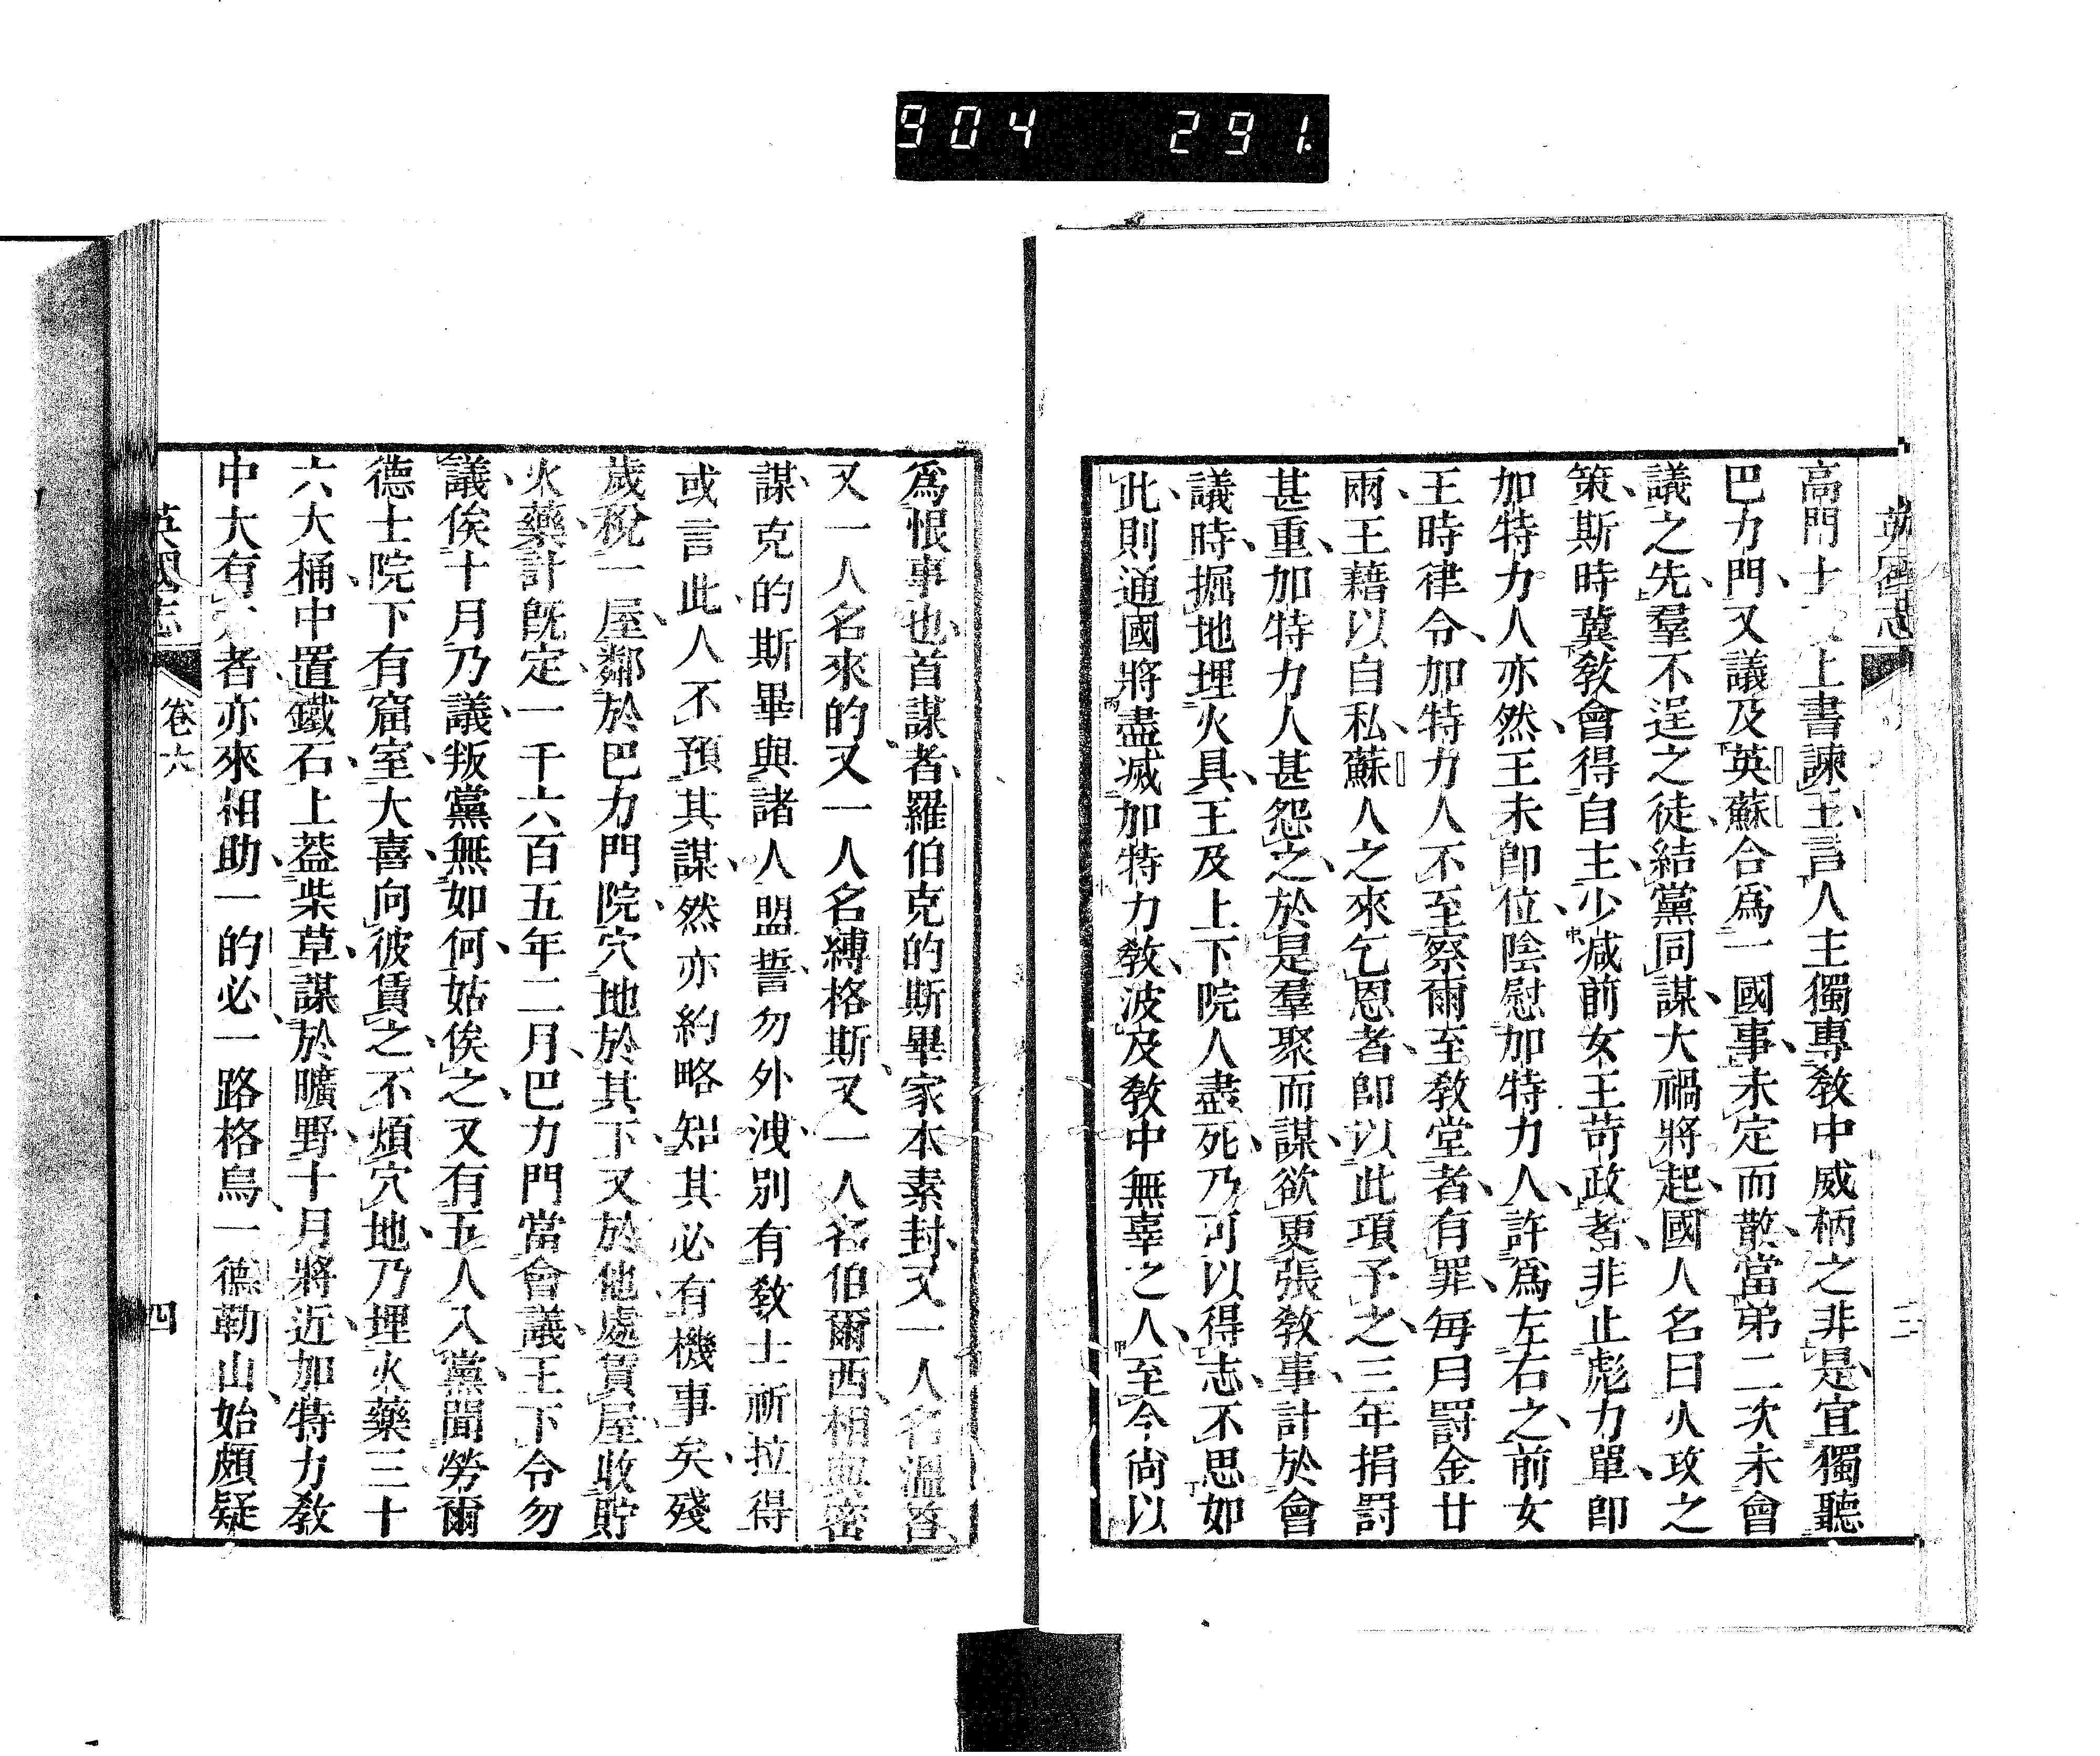 904 291.
高門士上書諫王言人主獨專教中威柄之非是宜獨聽
巴力門又議及英蘇合爲一國事未定而散當弟二次未會
議之先羣不逞之徒結黨同謀大禍將起國人名曰火攻之
策斯時冀教會得自主少減前女王苛政者非止彪力單卽
加特力人亦然王未卽位陰慰加特力人許爲左右之前女
王時律令加特力人不至察爾至教堂者有罪每月罰金廿
兩王藉以自私蘇人之來乞恩者卽以此項予之三年捐罰
甚重加特力人甚怨之於是羣聚而謀欲更張教事計於會
議時掘地埋火具王及上下院人盡死乃可以得志不思如
此則通國將盡滅加特力教波及教中無辜之人至今尙以
爲恨事也首謀者羅伯克的斯畢家本素封又一人名溫答
又一人名來的又一人名縛格斯又一人名伯爾西相與密
謀克的斯畢與諸人盟誓勿外洩別有教士祈拉得
或言此人不預其謀然亦約略知其必有機事矣殘
歲稅一屋鄰於巴力門院穴地於其下又於他處賃屋收貯
火藥計旣定一千六百五年二月巴力門當會議王下令勿
議俟十月乃議叛黨無如何姑俟之又有五人入黨聞勞爾
德士院下有窟室大喜向彼賃之不煩穴地乃埋火藥三十
六大桶中置鐵石上蓋柴草謀於曠野十月將近加特力教
中大有者亦來相助一的必一路格烏一德勒山始頗疑
英國志
卷六
四